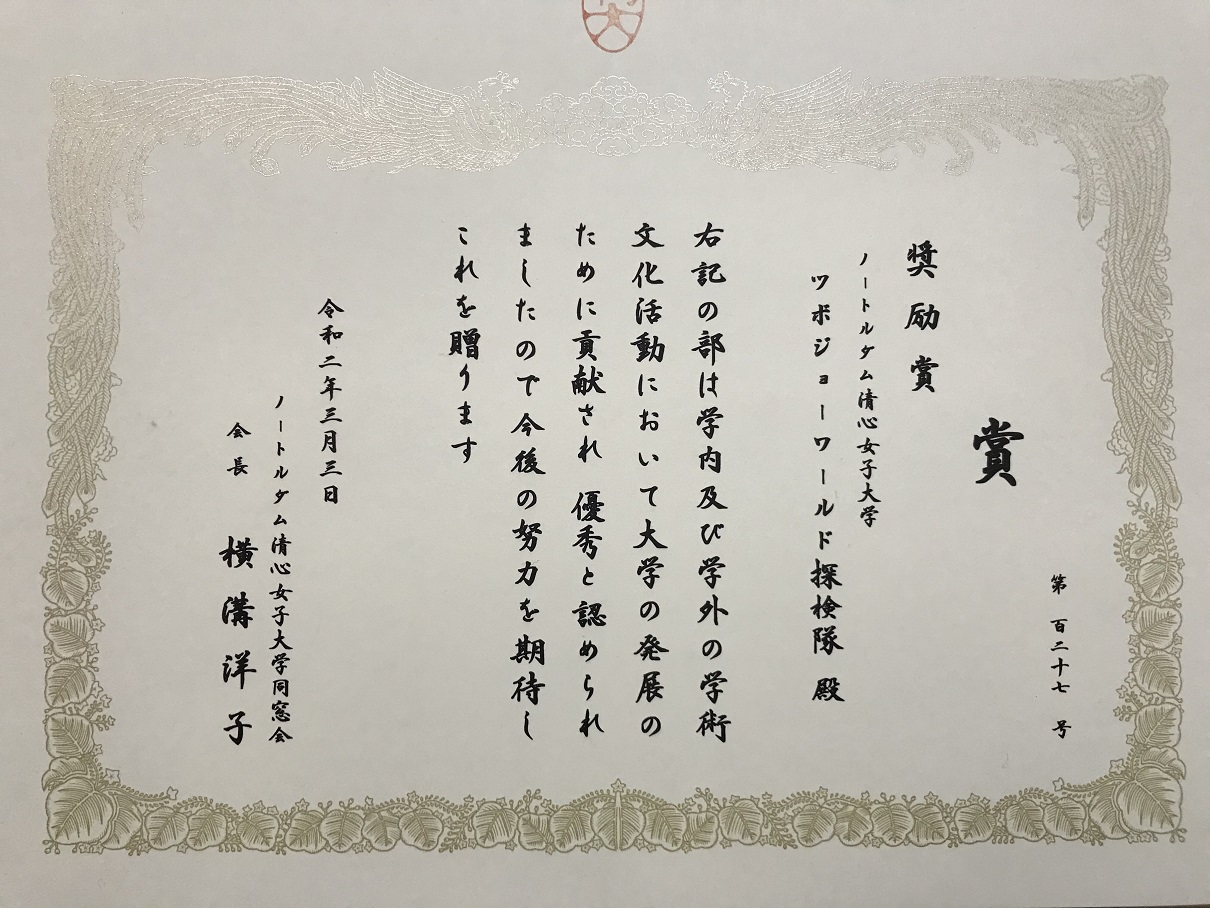 第 百二十七 号
賞
奨励賞
ノートルダム清心女子大学
ツボジョーワールド探検隊 殿
右記の部は学内及び学外の学術
文化活動において大学の発展の
ために貢献され 優秀と認められ
ましたので今後の努力を期待し
これを贈ります
令和二年三月三日
ノートルダム清心女子大学同窓会
会長 横溝洋子